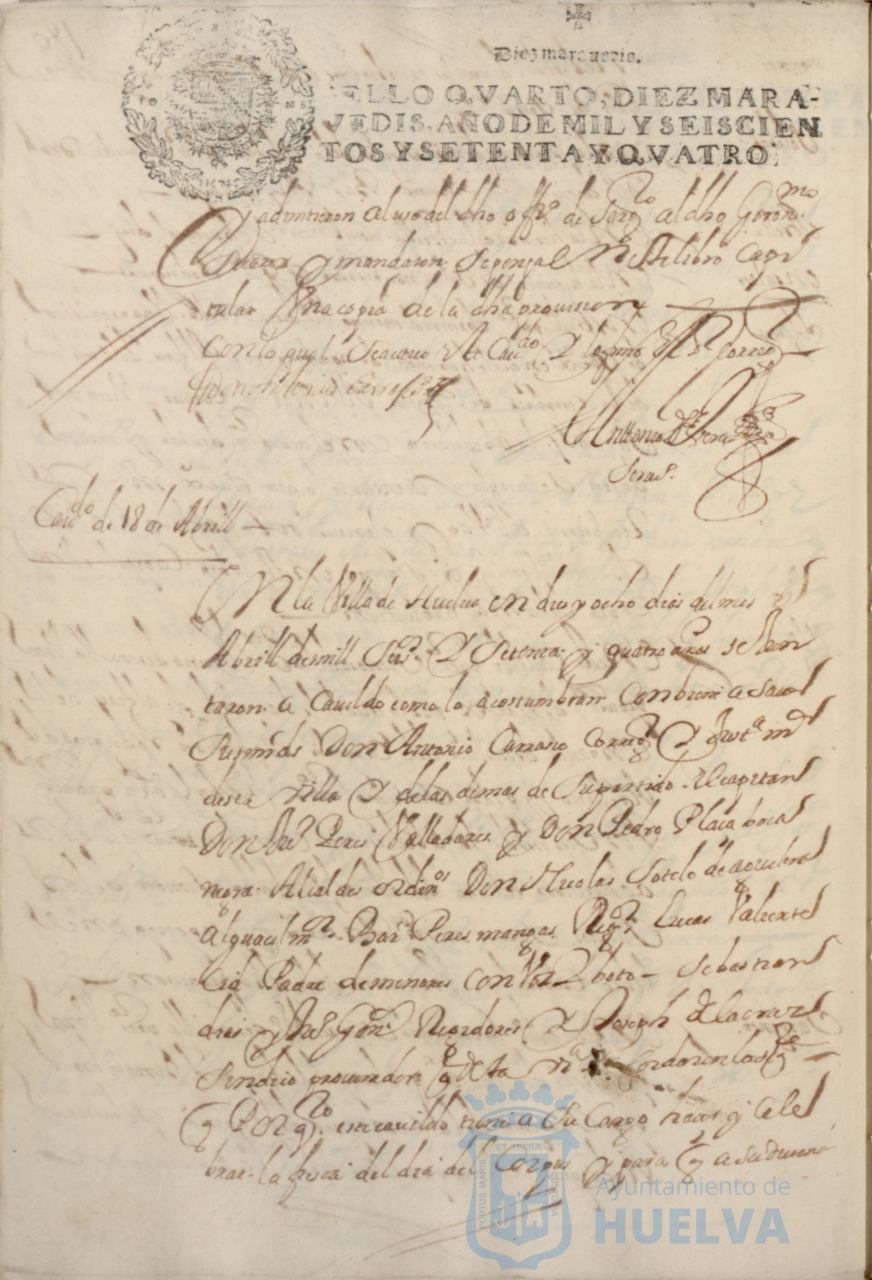 Diez marauedis.
SELLO QVARTO, DIEZ MARA-
VEDIS, AÑO DE MIL Y SEISCIEN
TOS Y SETENTA Y QVATRO.
admitieron al uso del dho offº de Serᵒ al dho Geronᵐᵒ
y mandaron se ponga en este libro Capi
tular Una copia de la dha provission
con lo qual se acavo este Cauᵈᵒ y lo firmo El Sʳ Corrᵒʳ
Don Antonio Carrasco
Anttonio de
Cauᵈᵒ de 18 de Abrill
En la Villa de Huelva en dies y ocho dias del mes de
Abrill de mill Seisº y Setenta y quatro años se Jun
taron a Cauildo como lo acostumbran Conbiene a Sauer
Sus mrds Don Antonio Carrasco Corrᵒʳ y Justᵃ mᵒʳ
desta villa y de las demas de Su partido. El capitan
Don Peres Valladares y Don Pedro Plaza boca
negra Alcaldes ordinᵒˢ Don Nicolas Sotelo de
alguacil mᵒʳ Bar Peres mangas Regᵒʳ Lucas Valiente
Cid Padre de menores con Voz y boto Sebastian
dias y Gonˢ Regidores y Joseph de la cruz
Sindico procurador desta Vᵃ Acordaron lo sigᵗᵉ
q Por qᵗᵒ este cauildo tiene a Su Cargo hacer y Cele
brar la fiesta del dia del Corpus y para q
PORTUS MARIS
ET TERRAE
Ayuntamiento de
HUELVA